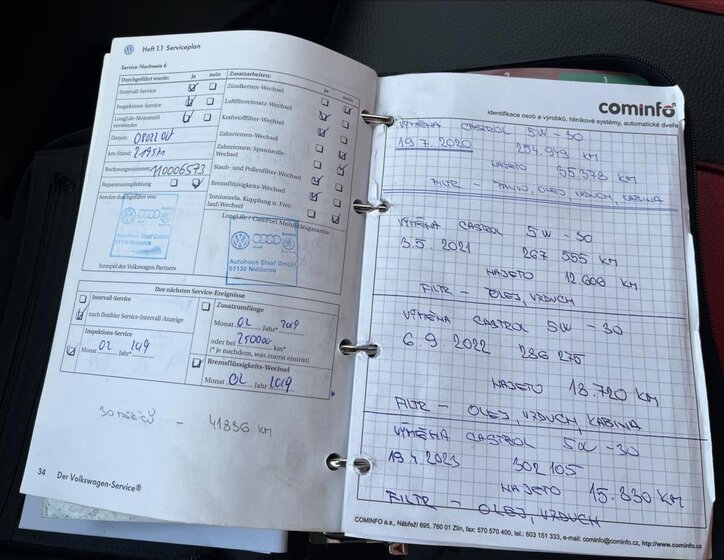 Heft 1.1 Serviceplan
Service-Nachweis 6
Durchgeführt wurde: ja nein
Intervall-Service
Inspektions-Service
LongLife-Motorenöl verwendet
Datum:
km-Stand:
Rechnungsnummer: 110006573
Reparaturempfehlung
Service durchgeführt von:
Autohaus Staaf GmbH
61130 Nidderau
Stempel des Volkswagen Partners
Zusatzarbeiten: ja nein
Zündkerzen-Wechsel
Luftfiltereinsatz-Wechsel
Kraftstofffilter-Wechsel
Zahnriemen-Wechsel
Zahnriemen-Spannrolle-Wechsel
Staub- und Pollenfilter-Wechsel
Bremsflüssigkeits-Wechsel
Torsionsela. Kupplung u. Frei-
lauf-Wechsel
LongLife / CarePort Mobilitätsgarantie
Audi
Autohaus Staaf GmbH
61130 Nidderau
Ihre nächsten Service-Ereignisse
Intervall-Service
nach flexibler Service-Intervall-Anzeige
Inspektions-Service
Monat 02 Jahr 2019
Zusatzumfänge
Monat 02 Jahr 2019
oder bei
250000 km*
(* je nachdem, was zuerst eintritt)
Bremsflüssigkeits-Wechsel
Monat 02 Jahr 2019
41836 KM
34 Der Volkswagen-Service®
cominfo
identifikace osob a výrobků, hliníkové systémy, automatické dveře
VÝMĚNA CASTROL 5W-30
19.7.2020 254.949 KM
NAJETO 35.378 KM
FILTR - PALIVO, OLEJ, VZDUCH, KABINA
VÝMĚNA CASTROL 5W-30
3.5.2021 267 555 KM
NAJETO 12 606 KM
FILTR - OLEJ, VZDUCH
VÝMĚNA CASTROL 5W-30
6.9.2022 286 275
NAJETO 18.720 KM
FILTR - OLEJ, VZDUCH, KABINA
VÝMĚNA CASTROL 5W-30
19.4.2023 302 105
NAJETO 15.830 KM
FILTR - OLEJ, VZDUCH
COMINFO a.s., Nábřeží 695, 760 01 Zlín, fax: 570 570 400, tel.: 603 151 333, e-mail: cominfo@cominfo.cz, http://www.cominfo.cz